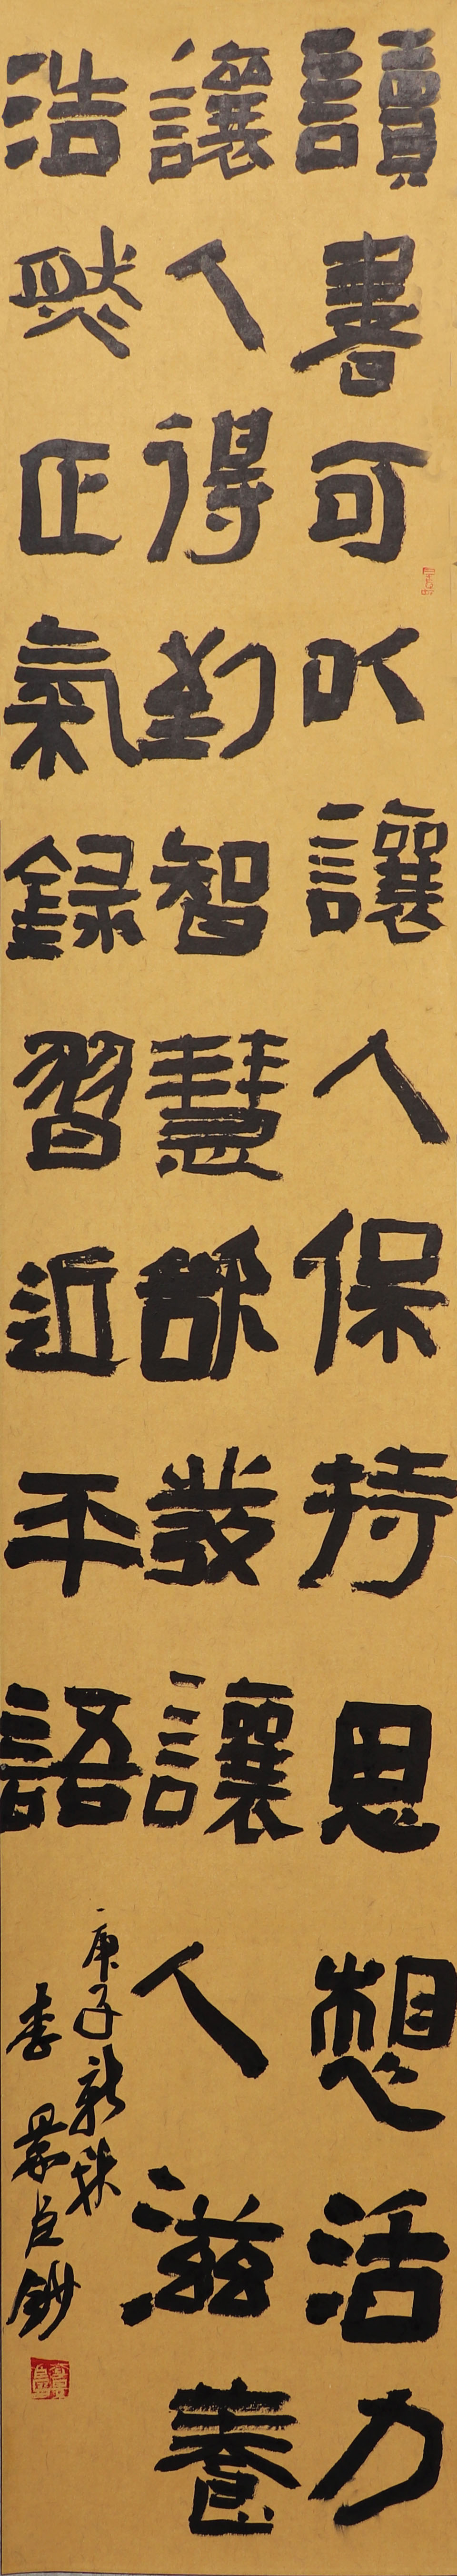 讀書可以讓人保持思想活力
讓人得到智慧啟發讓人滋養
浩然正氣錄習近平語
庚子新秋
李景臣鈔